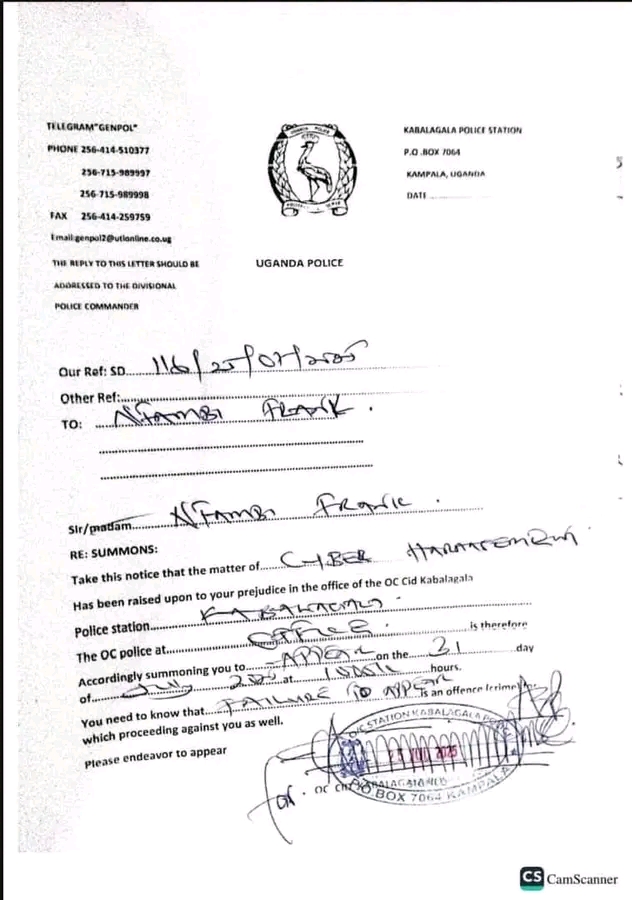 TELEGRAM"GENPOL"
PHONE 256-414-510377
256-715-989997
256-715-989998
FAX 256-414-259759
Email:genpol2@utlonline.co.ug
THE REPLY TO THIS LETTER SHOULD BE
ADDRESSED TO THE DIVISIONAL
POLICE COMMANDER
KABALAGALA POLICE STATION
P.O .BOX 7064
KAMPALA, UGANDA
DATE
UGANDA POLICE
Our Ref: SD 116/25/07/2025
Other Ref:
TO: NTAMBI FRANK.
Sir/madam NTAMBI FRANK.
RE: SUMMONS:
Take this notice that the matter of CYBER HARASSEMENT
Has been raised upon to your prejudice in the office of the OC Cid Kabalagala
Police station KABALAGALA
The OC police at OFFICE. is therefore
Accordingly summoning you to APPEAR on the 31 day
of July at hours.
You need to know that FAILURE TO APPEAR is an offence
which proceeding against you as well.
Please endeavor to appear
STATION KABALAGALA
2025
P.O BOX 7064 KAMPALA
CS CamScanner